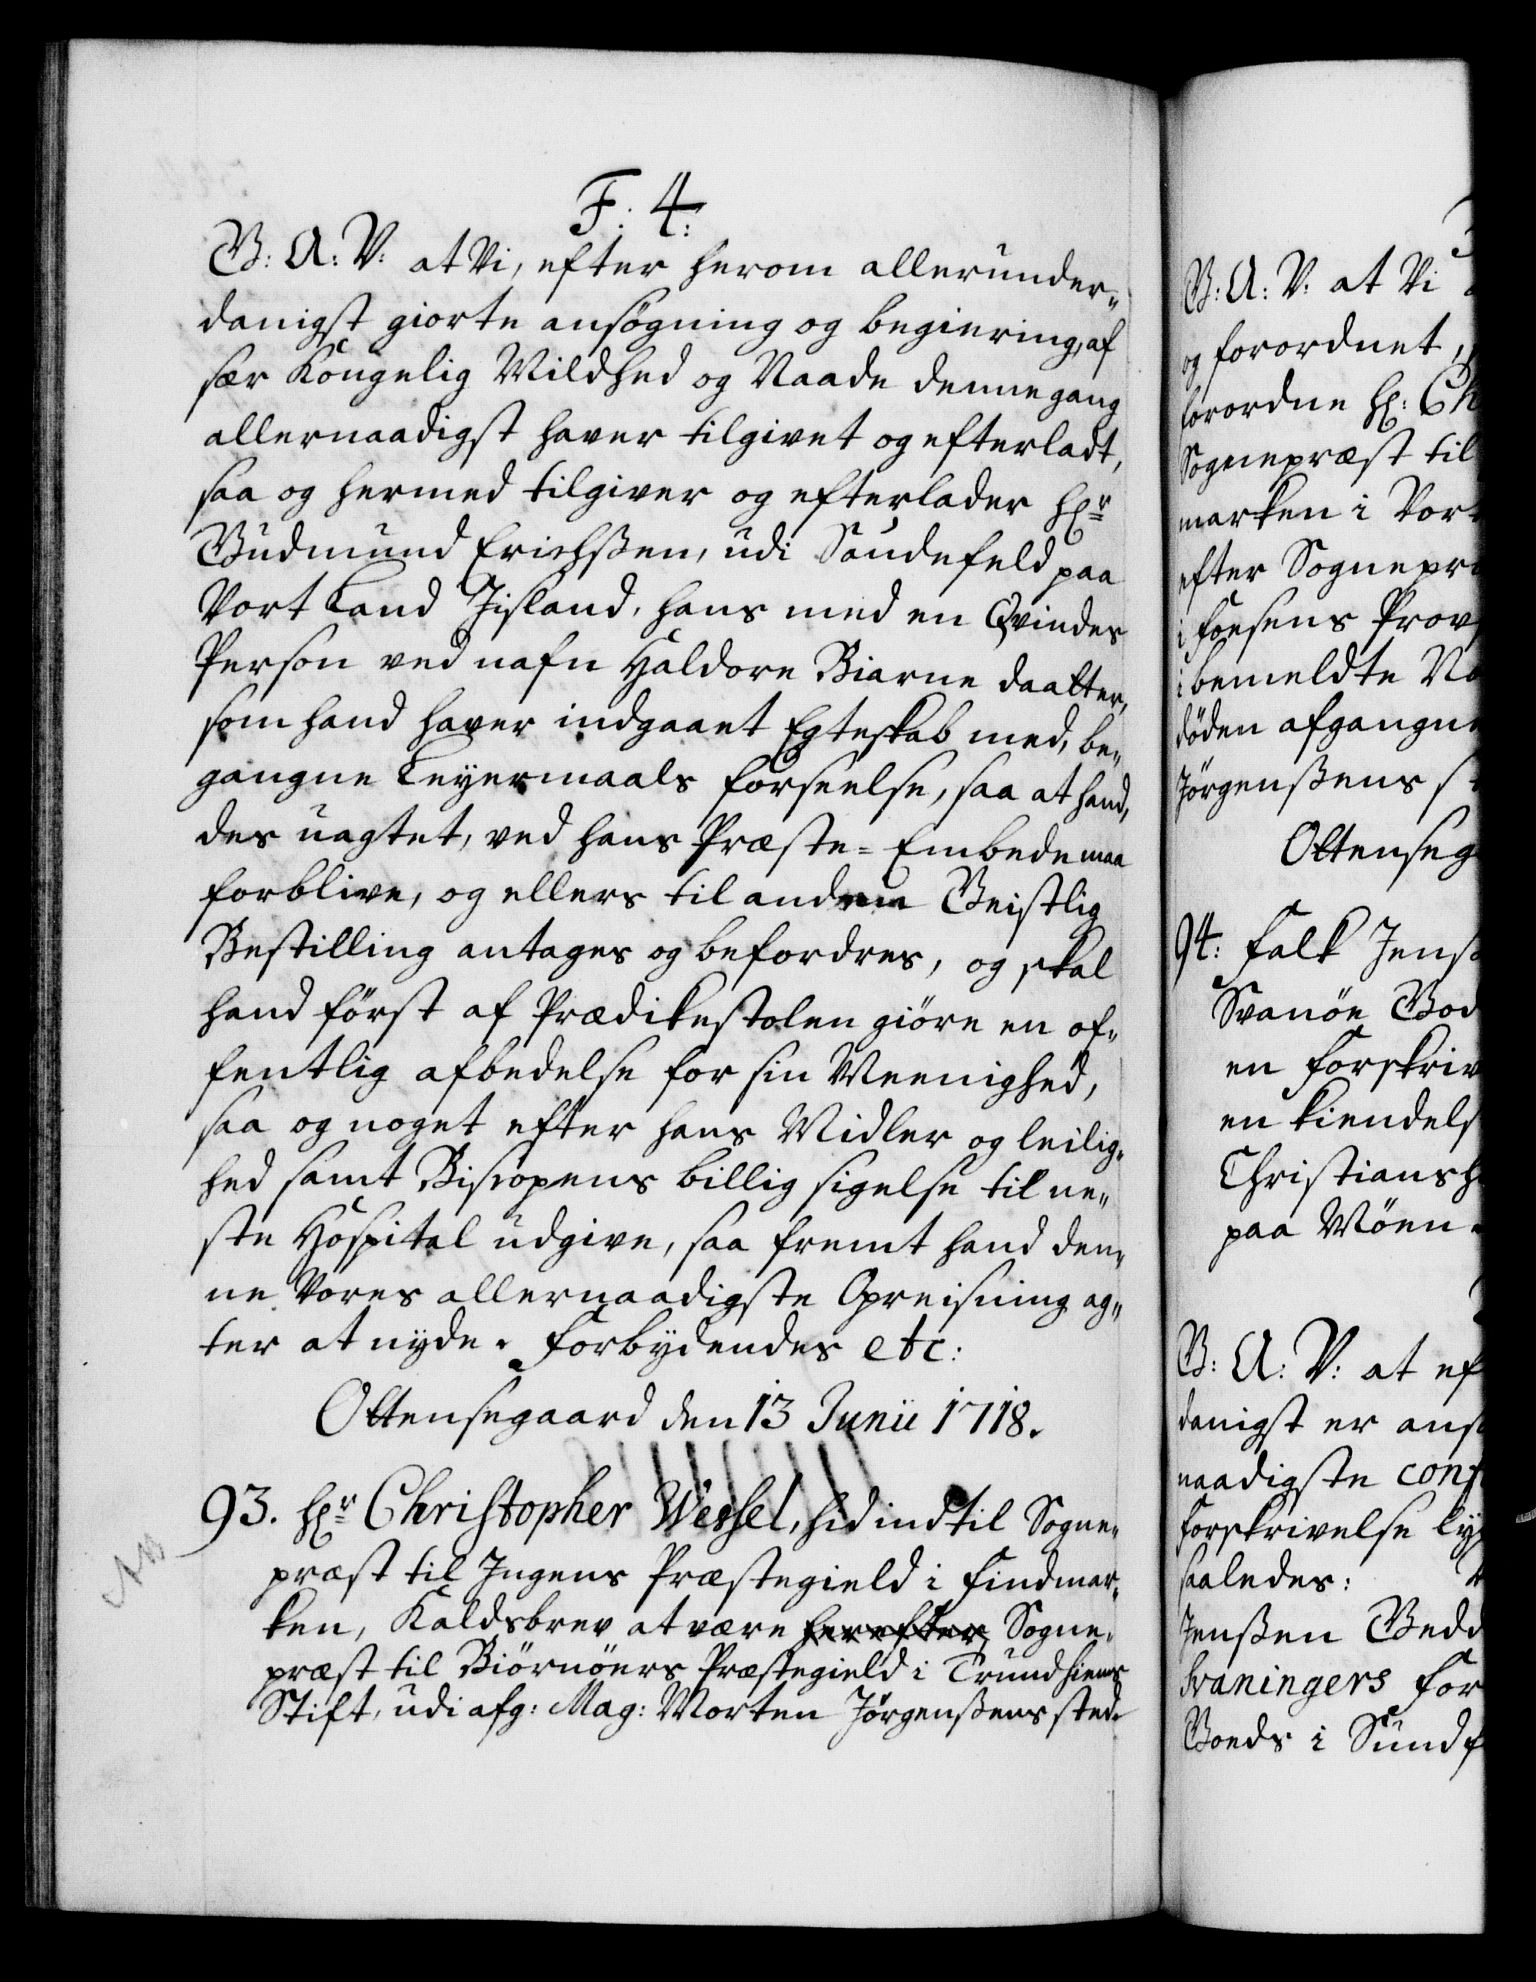 F: 4:
G: A: V: at Vi, efter herom allerunder„
danigst giorte ansøgning og begiering, af
sær Kongelig Mildhed og Naade denne gang
allernaadigst haver tilgivet og efterladt,
saa og hermed tilgiver og efterlader Hr
Gudmund Erichßen, udi Saudefeld paa
Vort Land Jisland, hans med en Qvindes
Person ved nafn Haldore Biarne daatter,
som hand haver indgaaet Egteskab med, be„
gangne Leyermaals forseelse, saa at hand,
des uagtet, ved hans Præste-Embede maa
forblive, og ellers til anden Geistlig
Bestilling antages og befordres, og skal
hand först af Prædikestolen giöre en of„
fentlig afbedelse for sin Ueenighed,
saa og noget efter hans Midler og leilig„
hed samt Biscopens billig sigelse til ne„
ste Hospital udgive, saa fremt hand den„
ne Vores allernaadigste Opreisning ag„
ter at nyde. Forbydendes etc:
Ottensegaard den 13 Junii 1718.
93. Hr Christopher Wessel, hid indtil Sogne„
præst til Ingens Præstegield i Findmar„
ken, Kaldsbrev at være herefter Sogne„
præst til Biörnöers Præstegield i Trundhiems
Stift, udi afg: Mag: Morten Jörgenßens sted.
G: A: V: at Vi
og forordnet,
forordne Hr: Ch
Sognepræst til
marken i Vort
efter Sognepr
i foesens Prov
i bemeldte No
döden afgangne
Jörgenßens st
Ottenseg
94: Falk Jenß
Svanöe God
en forskriv
en kiendels
Christiansh
paa Möen
G: A: V: at ef
danigst er ans
naadigste conf
forskrivelse ly
saaledes:
Jenßen Gedd
Svaningers for
Goeds i Sundf